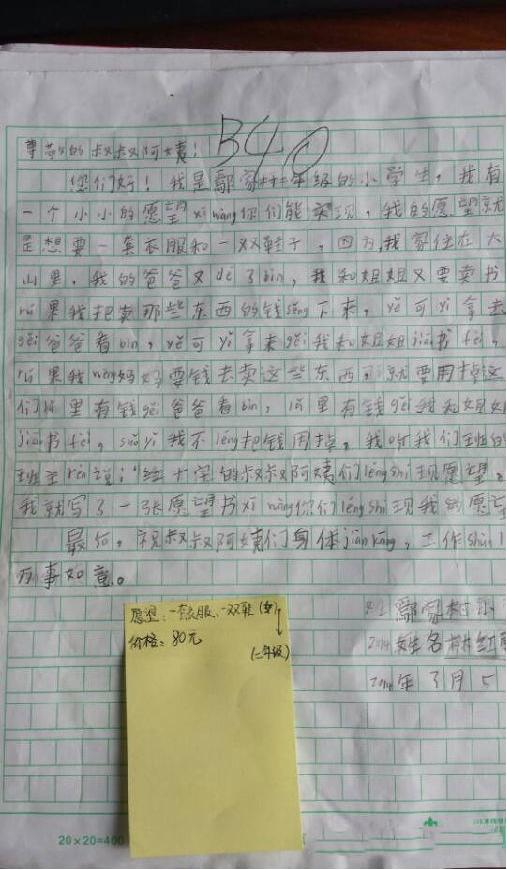 B40
尊敬的叔叔阿姨：
您们好！我是鄢家村二年级的小学生，我有
一个小小的愿望xī wàng你们能实现，我的愿望就
是想要一套衣服和一双鞋子，因为，我家住在大
山里，我的爸爸又dé了bìn，我和姐姐又要卖书
rú果我把卖那些东西的钱shěng下来，yě可yǐ拿去
gěi爸爸看bìn，yě可yǐ拿来gěi我和姐姐jiāo书fèi，
rú果我wèng妈妈要钱去卖这些东西，就要用掉这
们里有钱gěi爸爸看bìn，里有钱gěi我和姐姐
jiāo书fèi，suǒ yǐ我不léng把钱用掉。我听我们班的
班主rèn说："红十字的叔叔阿姨们léng shí现愿望。
我就写了一张愿望书xī wàng你们léng shí现我的愿望
最后，祝叔叔阿姨们身体jiàn kāng，工作shùn l
万事如意。
鄢家村小
姓名林红
年3月5
愿望：一套衣服、一双鞋(女)
价格：80元
(二年级)
20×20=400